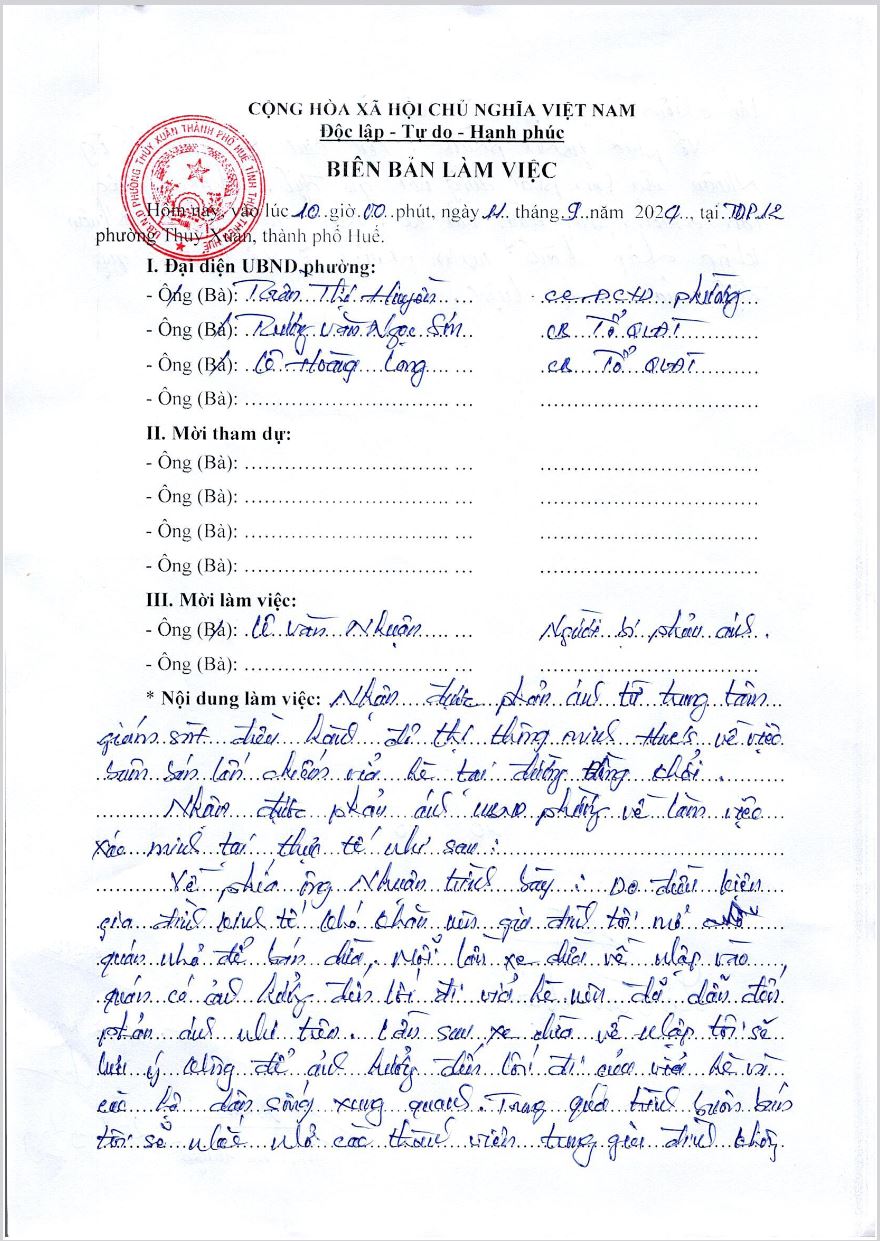 CỘNG HÒA XÃ HỘI CHỦ NGHĨA VIỆT NAM
Độc lập - Tự do - Hạnh phúc
BIÊN BẢN LÀM VIỆC
UBND PHƯỜNG THỦY XUÂN THÀNH PHỐ HUẾ TỈNH THỪA THIÊN HUẾ
Hôm nay, vào lúc 10 giờ 00 phút, ngày 11 tháng 9 năm 2024, tại TDP 12
phường Thủy Xuân, thành phố Huế.
I. Đại diện UBND phường:
- Ông (Bà): Trần Thị Huyền ... phường
- Ông (Bà): Trương Văn Ngọc Sơn CB Tổ QLĐT
- Ông (Bà): Lê Hoàng Long CB Tổ QLĐT
- Ông (Bà): ...
II. Mời tham dự:
- Ông (Bà): ...
- Ông (Bà): ...
- Ông (Bà): ...
- Ông (Bà): ...
III. Mời làm việc:
- Ông (Bà): Lê Văn Nhuận Người bị phản ánh.
- Ông (Bà): ...
* Nội dung làm việc: Nhận được phản ánh từ trung tâm
giám sát điều hành đô thị thông minh HueS về việc
buôn bán lấn chiếm vỉa hè tại đường
Nhận được phản ánh UBND phường về làm việc
xác minh tại thực tế như sau:
Về phía ông Nhuận trình bày: Do điều kiện
gia đình kinh tế khó khăn nên gia đình tôi mở
quán nhỏ để bán dừa, mỗi lần xe dừa về nhập vào
quán có ảnh hưởng đến lối đi vỉa hè nên đã dẫn đến
phản ánh như trên. Lần sau xe dừa về nhập tôi sẽ
lưu ý không để ảnh hưởng đến lối đi của vỉa hè và
các hộ dân sống xung quanh. Trong quá trình buôn bán
tôi sẽ nhắc nhở các thành viên trong gia đình không